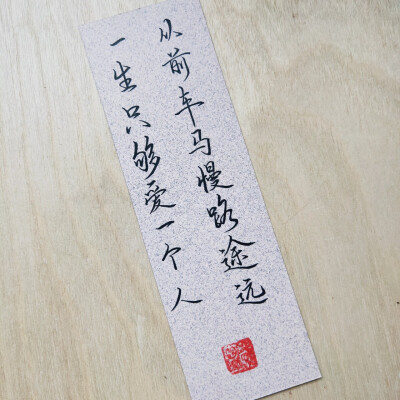 从前车马慢路途远
一生只够爱一个人